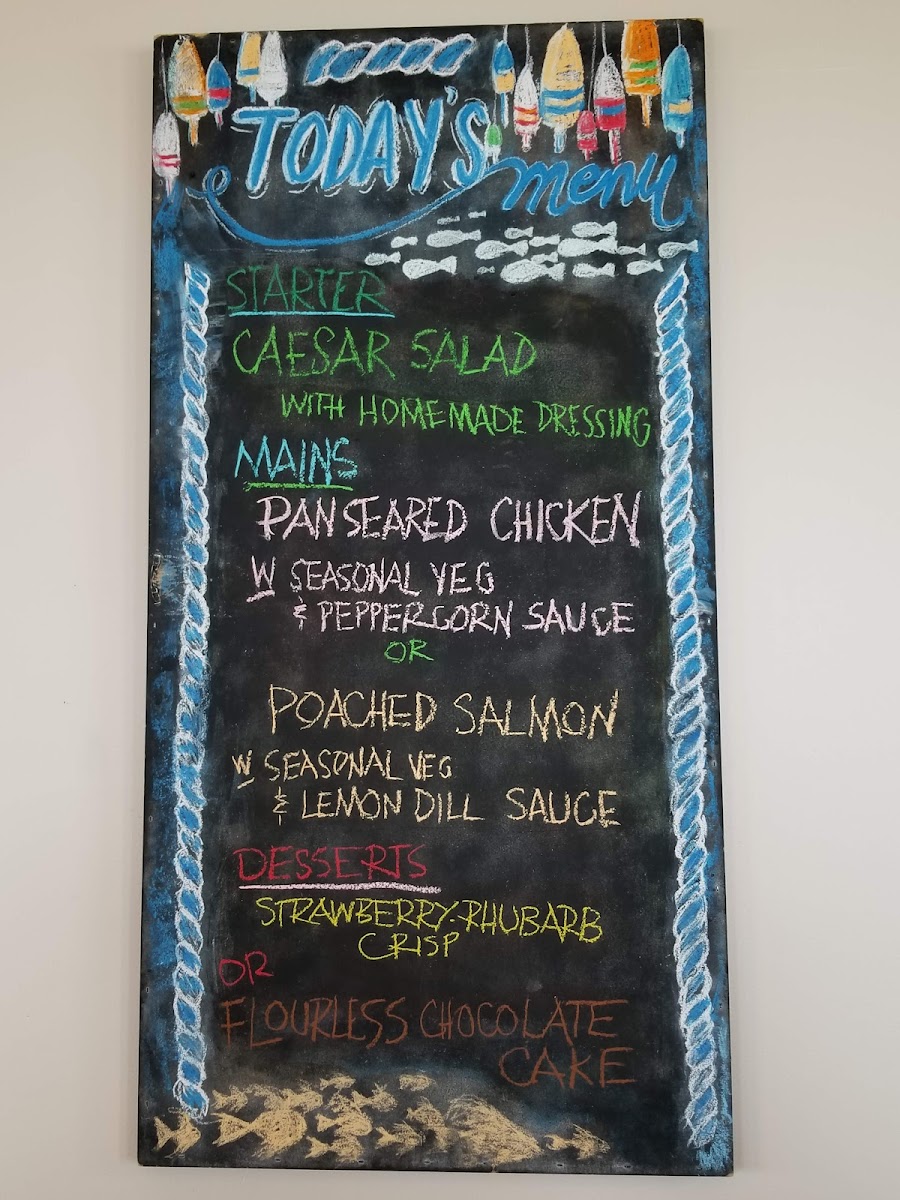 TODAY'S
menu
STARTER
CAESAR SALAD
WITH HOMEMADE DRESSING
MAINS
PAN SEARED CHICKEN
W SEASONAL VEG
& PEPPERCORN SAUCE
OR
POACHED SALMON
W SEASONAL VEG
& LEMON DILL SAUCE
DESSERTS
STRAWBERRY-RHUBARB
CRISP
OR
FLOURLESS CHOCOLATE
CAKE